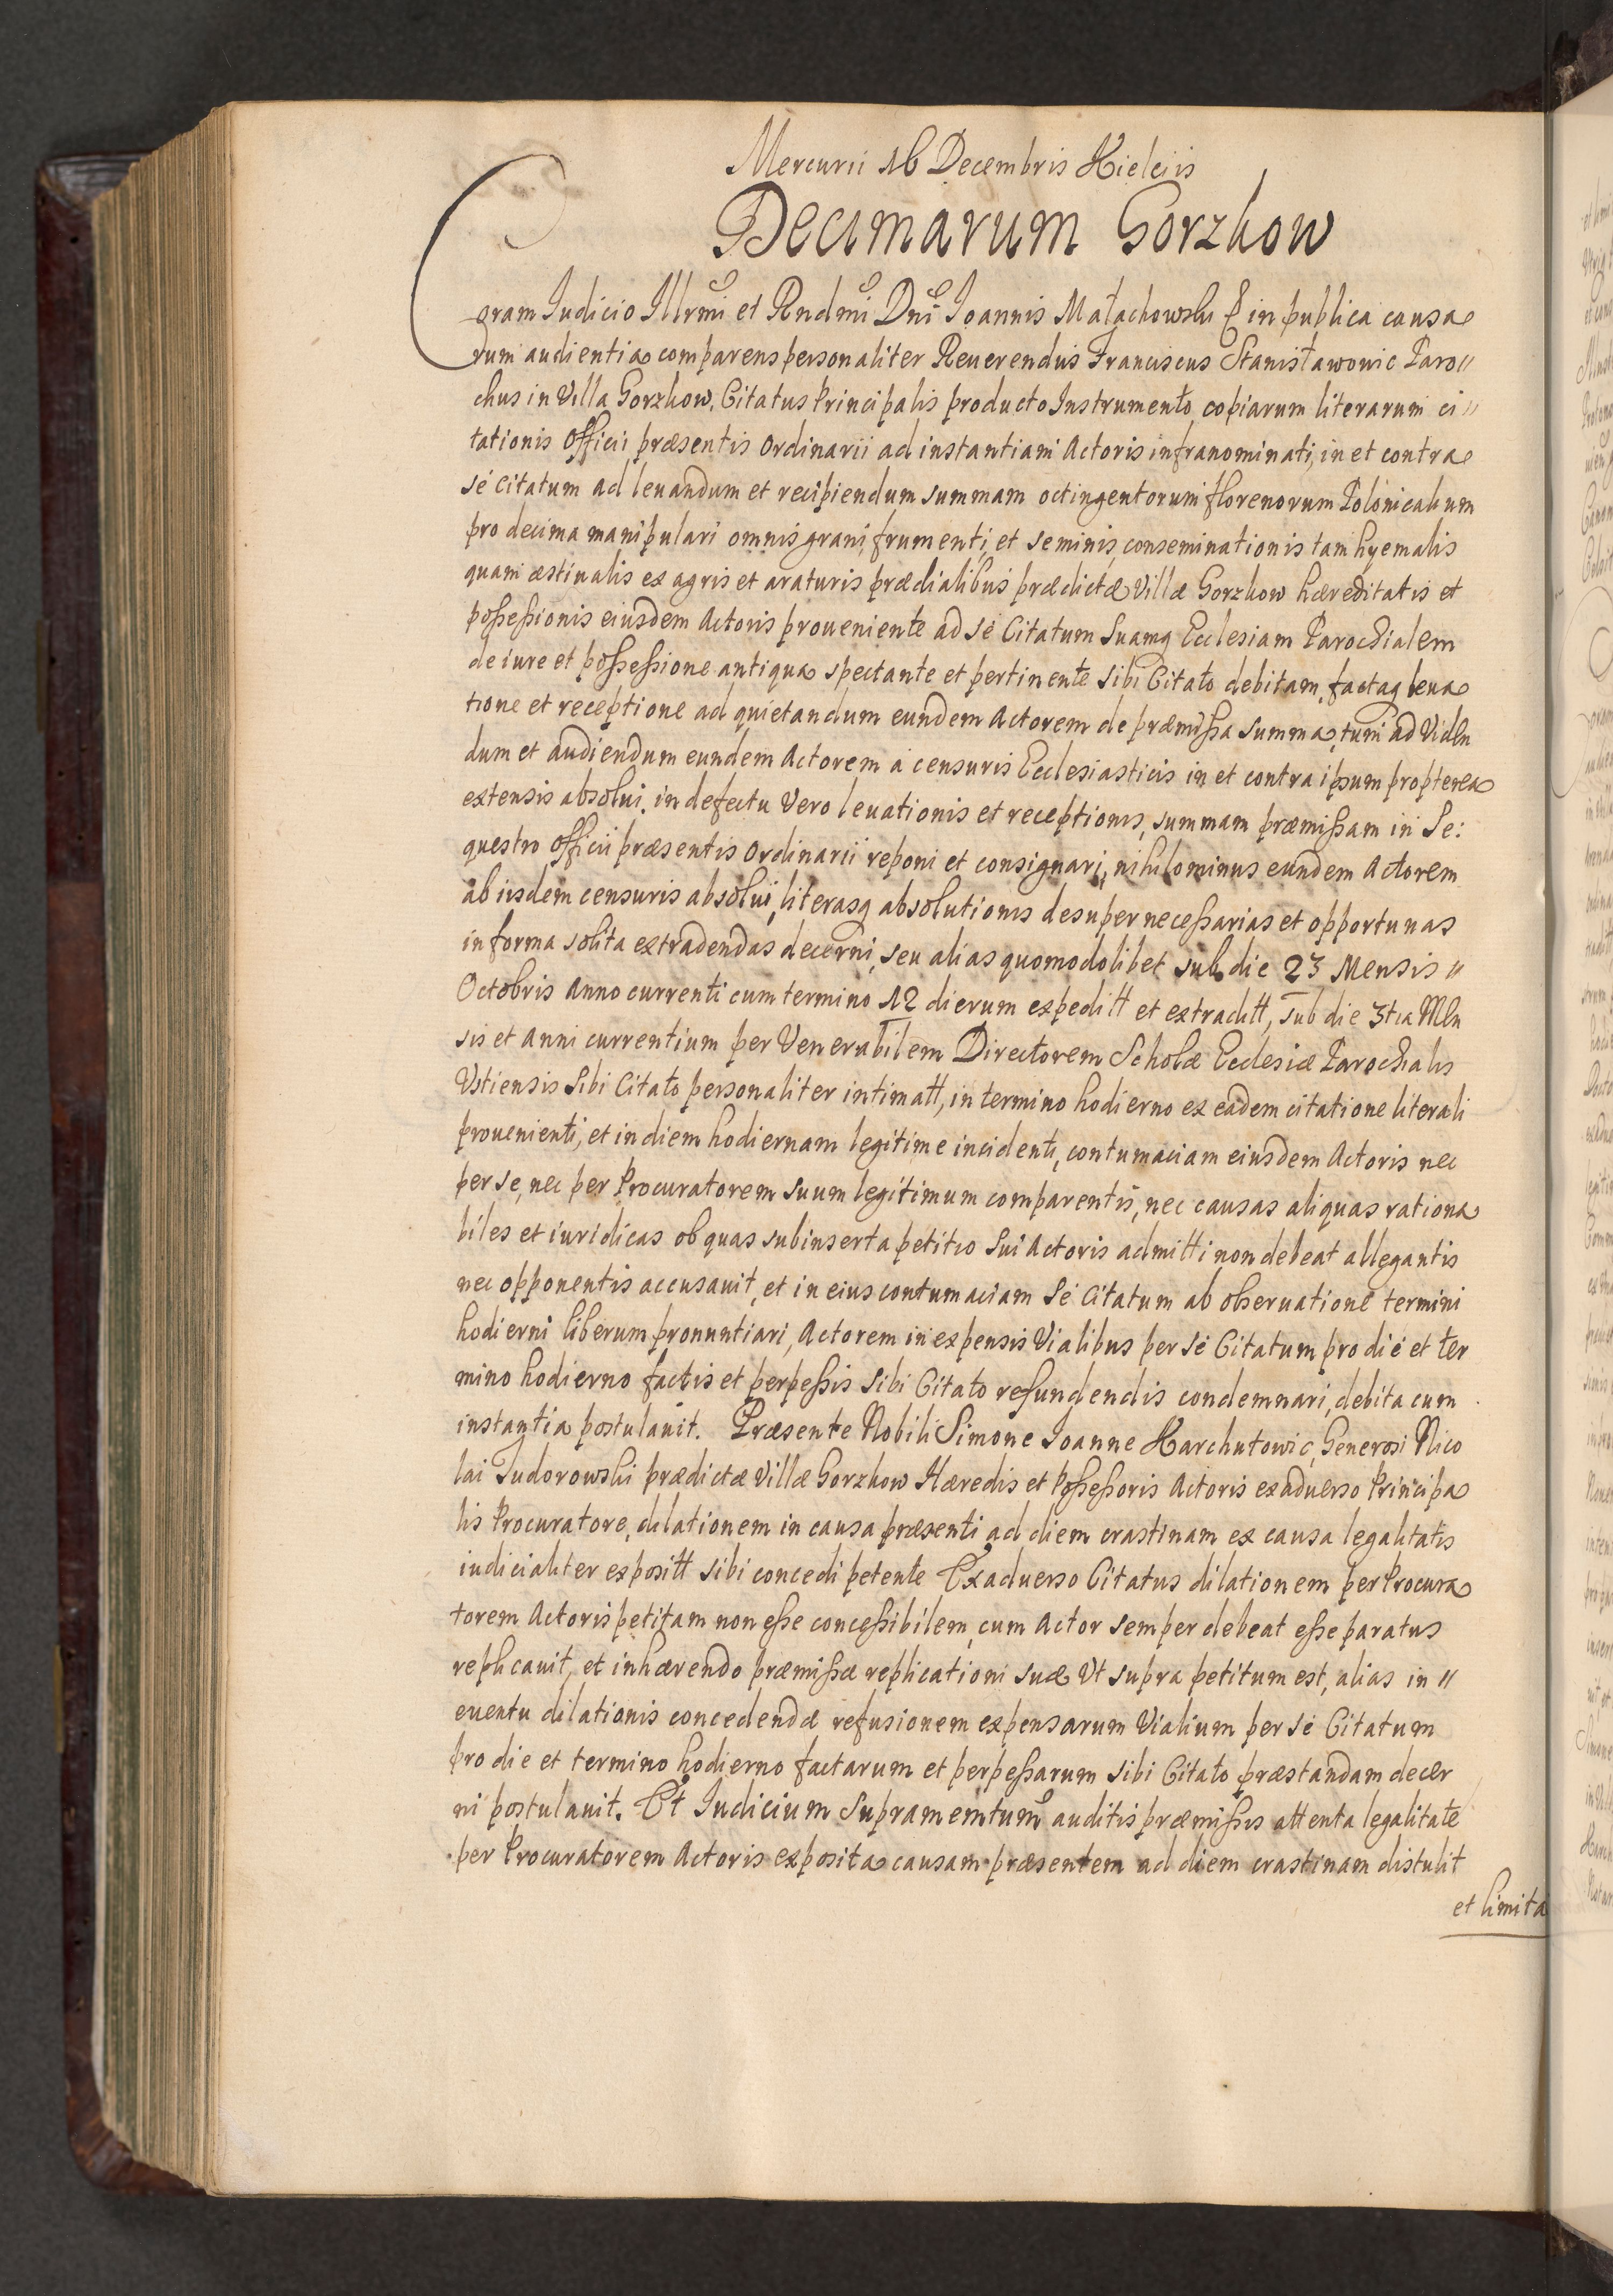 Mercurii 16 Decembris Kielciis
Decimarum Gorzkow
Coram Iudicio Illrmi et Rndmi Dni Ioannis Małachowski & in publica causa
rum audientia comparens personaliter Reuerendus Franciscus Stanisławowic Paro„
chus in Villa Gorzkow, Citatus Principalis producto Instrumento copiarum literarum ci„
tationis Officii præsentis Ordinarii ad instantiam Actoris infranominati, in et contra
se Citatum ad leuandum et recipiendum summam octingentorum florenorum Polonicalium
pro decima manipulari omnis grani, frumenti, et seminis, conseminationis tam hyemalis
quam æstiualis ex agris et araturis prædialibus prædictæ Villæ Gorzkow hæreditatis et
possessionis eiusdem Actoris proueniente ad se Citatum Suamq Ecclesiam Parochialem
de iure et possessione antiqua spectante et pertinente sibi Citato debitam, factaq leua
tione et receptione ad quietandum eundem Actorem de præmissa summa, tum ad Viden
dum et audiendum eundem Actorem a censuris Ecclesiasticis in et contra ipsum propterea
extensis absolui, in defectu Vero leuationis et receptionis, summam præmissam in Se:
questro Officii præsentis Ordinarii reponi et consignari, nihilominus eundem Actorem
ab iisdem censuris absolui, literasq absolutionis desuper necessarias et opportunas
in forma solita extradendas decerni, seu alias quomodolibet sub die 23 Mensis „
Octobris Anno currenti cum termino 12 dierum expeditt et extraditt, sub die 3tia Men
sis et Anni currentium per Venerabilem Directorem Scholæ Ecclesiæ Parochialis
Vstiensis Sibi Citato personaliter intimatt, in termino hodierno ex eadem citatione literali
prouenienti, et in diem hodiernam legitime incidenti, contumaciam eiusdem Actoris nec
per se, nec per Procuratorem suum legitimum comparentis, nec causas aliquas rationa
biles et iuridicas ob quas subinserta petitio Sui Actoris admitti non debeat allegantis
nec opponentis accusauit, et in eius contumaciam Se Citatum ab obseruatione termini
hodierni liberum pronuntiari, Actorem in expensis Vialibus per se Citatum pro die et ter
mino hodierno factis et perpessis sibi Citato refundendis condemnari, debita cum
instantia postulauit. Præsente Nobili Simone Ioanne Harchutowic, Generosi Nico
lai Tudorowski prædictæ Villæ Gorzkow Hæredis et Possessoris Actoris exaduerso Principa
lis Procuratore, dilationem in causa præsenti ad diem crastinam ex causa legalitatis
iudicialiter expositt sibi concedi petente Exaduerso Citatus dilationem per Procura
torem Actoris petitam non esse concessibilem, cum Actor semper debeat esse paratus
replicauit, et inhærendo præmissæ replicationi suæ Vt supra petitum est, alias in „
euentu dilationis concedendæ refusionem expensarum Vialium per se Citatum
pro die et termino hodierno factarum et perpessarum sibi Citato præstandam decer
ni postulauit. Et Iudicium Supramemtum auditis præmissis attenta legalitate
per Procuratorem Actoris exposita causam præsentem ad diem crastinam distulit
et limita